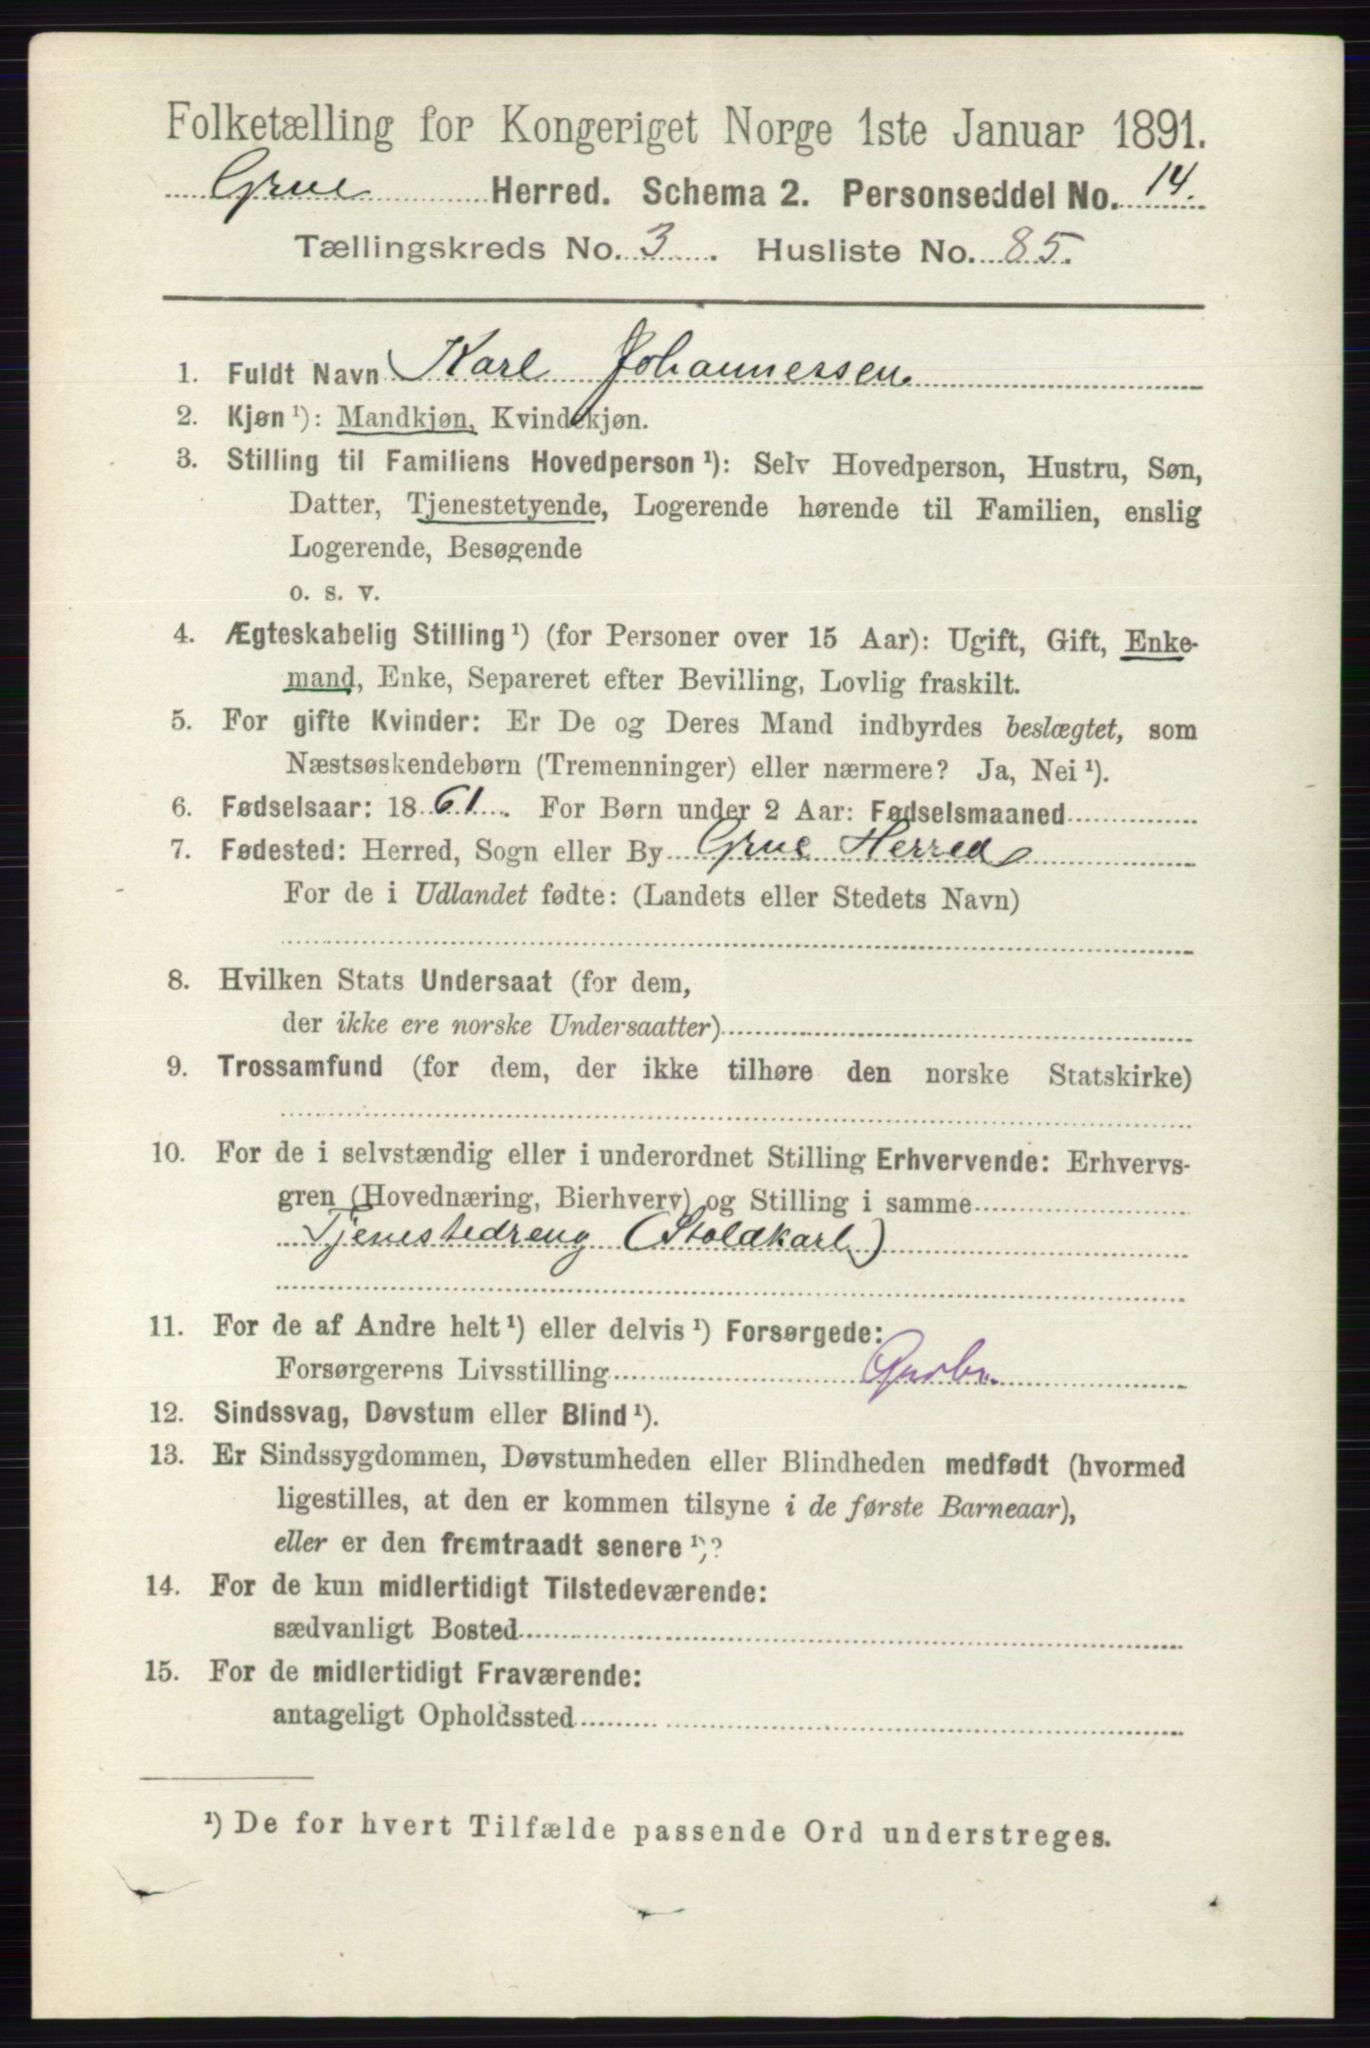 Folketælling for Kongeriget Norge 1ste Januar 1891.
Grue Herred. Schema 2. Personseddel No. 14.
Tællingskreds No. 3. Husliste No. 85.
1. Fuldt Navn Karl Johannessen
2. Kjøn ¹): Mandkjøn, Kvindekjøn.
3. Stilling til Familiens Hovedperson ¹): Selv Hovedperson, Hustru, Søn,
Datter, Tjenestetyende, Logerende hørende til Familien, enslig
Logerende, Besøgende
o. s. v.
4. Ægteskabelig Stilling ¹) (for Personer over 15 Aar): Ugift, Gift, Enke-
mand, Enke, Separeret efter Bevilling, Lovlig fraskilt.
5. For gifte Kvinder: Er De og Deres Mand indbyrdes beslægtet, som
Næstsøskendebørn (Tremenninger) eller nærmere? Ja, Nei ¹).
6. Fødselsaar: 1861. For Børn under 2 Aar: Fødselsmaaned
7. Fødested: Herred, Sogn eller By Grue Herred
For de i Udlandet fødte: (Landets eller Stedets Navn)
8. Hvilken Stats Undersaat (for dem,
der ikke ere norske Undersaatter)
9. Trossamfund (for dem, der ikke tilhøre den norske Statskirke)
10. For de i selvstændig eller i underordnet Stilling Erhvervende: Erhvervs-
gren (Hovednæring, Bierhverv) og Stilling i samme
Tjenestedreng (Staldkarl)
11. For de af Andre helt ¹) eller delvis ¹) Forsørgede:
Forsørgerens Livsstilling
12. Sindssvag, Døvstum eller Blind ¹).
13. Er Sindssygdommen, Døvstumheden eller Blindheden medfødt (hvormed
ligestilles, at den er kommen tilsyne i de første Barneaar),
eller er den fremtraadt senere ¹)?
14. For de kun midlertidigt Tilstedeværende:
sædvanligt Bosted
15. For de midlertidigt Fraværende:
antageligt Opholdssted
¹) De for hvert Tilfælde passende Ord understreges.